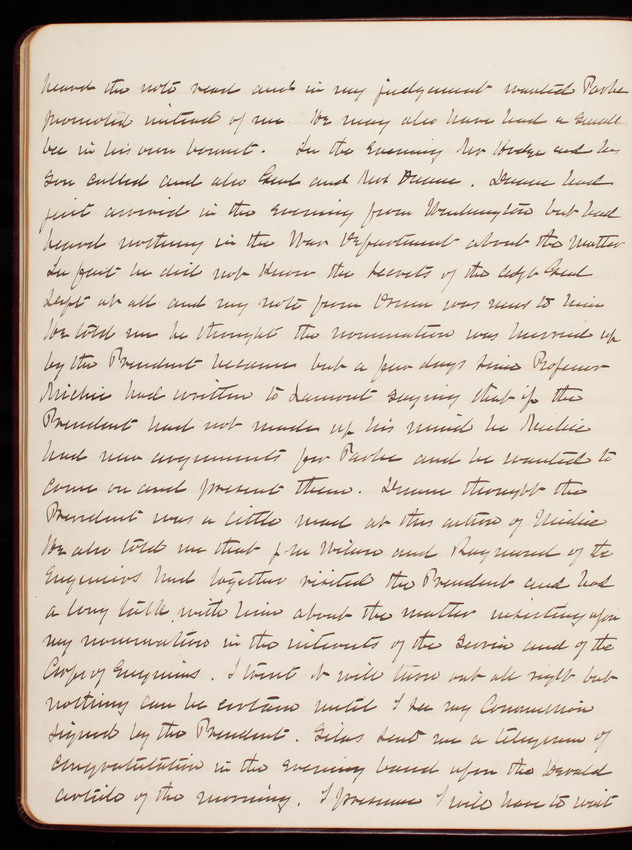 heard the note read and in my judgement wanted Parke
promoted instead of me. He may also have had a small
bee in his own bonnet. In the evening Mr Hodge and his
son called and also Genl and Mrs Duane. Duane had
just arrived in the evening from Washington but had
heard nothing in the War Department about the matter
In fact he did not know the secrets of the Adjt Genl
Dept at all and my note from Drum was new to him
He told me he thought the nomination was hurried up
by the President because but a few days since Professor
Michie had written to Lamont saying that if the
President had not made up his mind he Michie
had new arguments for Parke and he wanted to
come on and present them. Duane thought the
President was a little mad at this action of Michie
He also told me that Wilson and Raymond of the
Engineers had together visited the President and had
a long talk with him about the matter insisting upon
my nomination in the interests of the service and of the
Corps of Engineers. I trust it will turn out all right but
nothing can be certain until I see my Commission
signed by the President. Silas sent me a telegram of
congratulation in the evening based upon the Herald
article of the morning. I presume I will have to wait